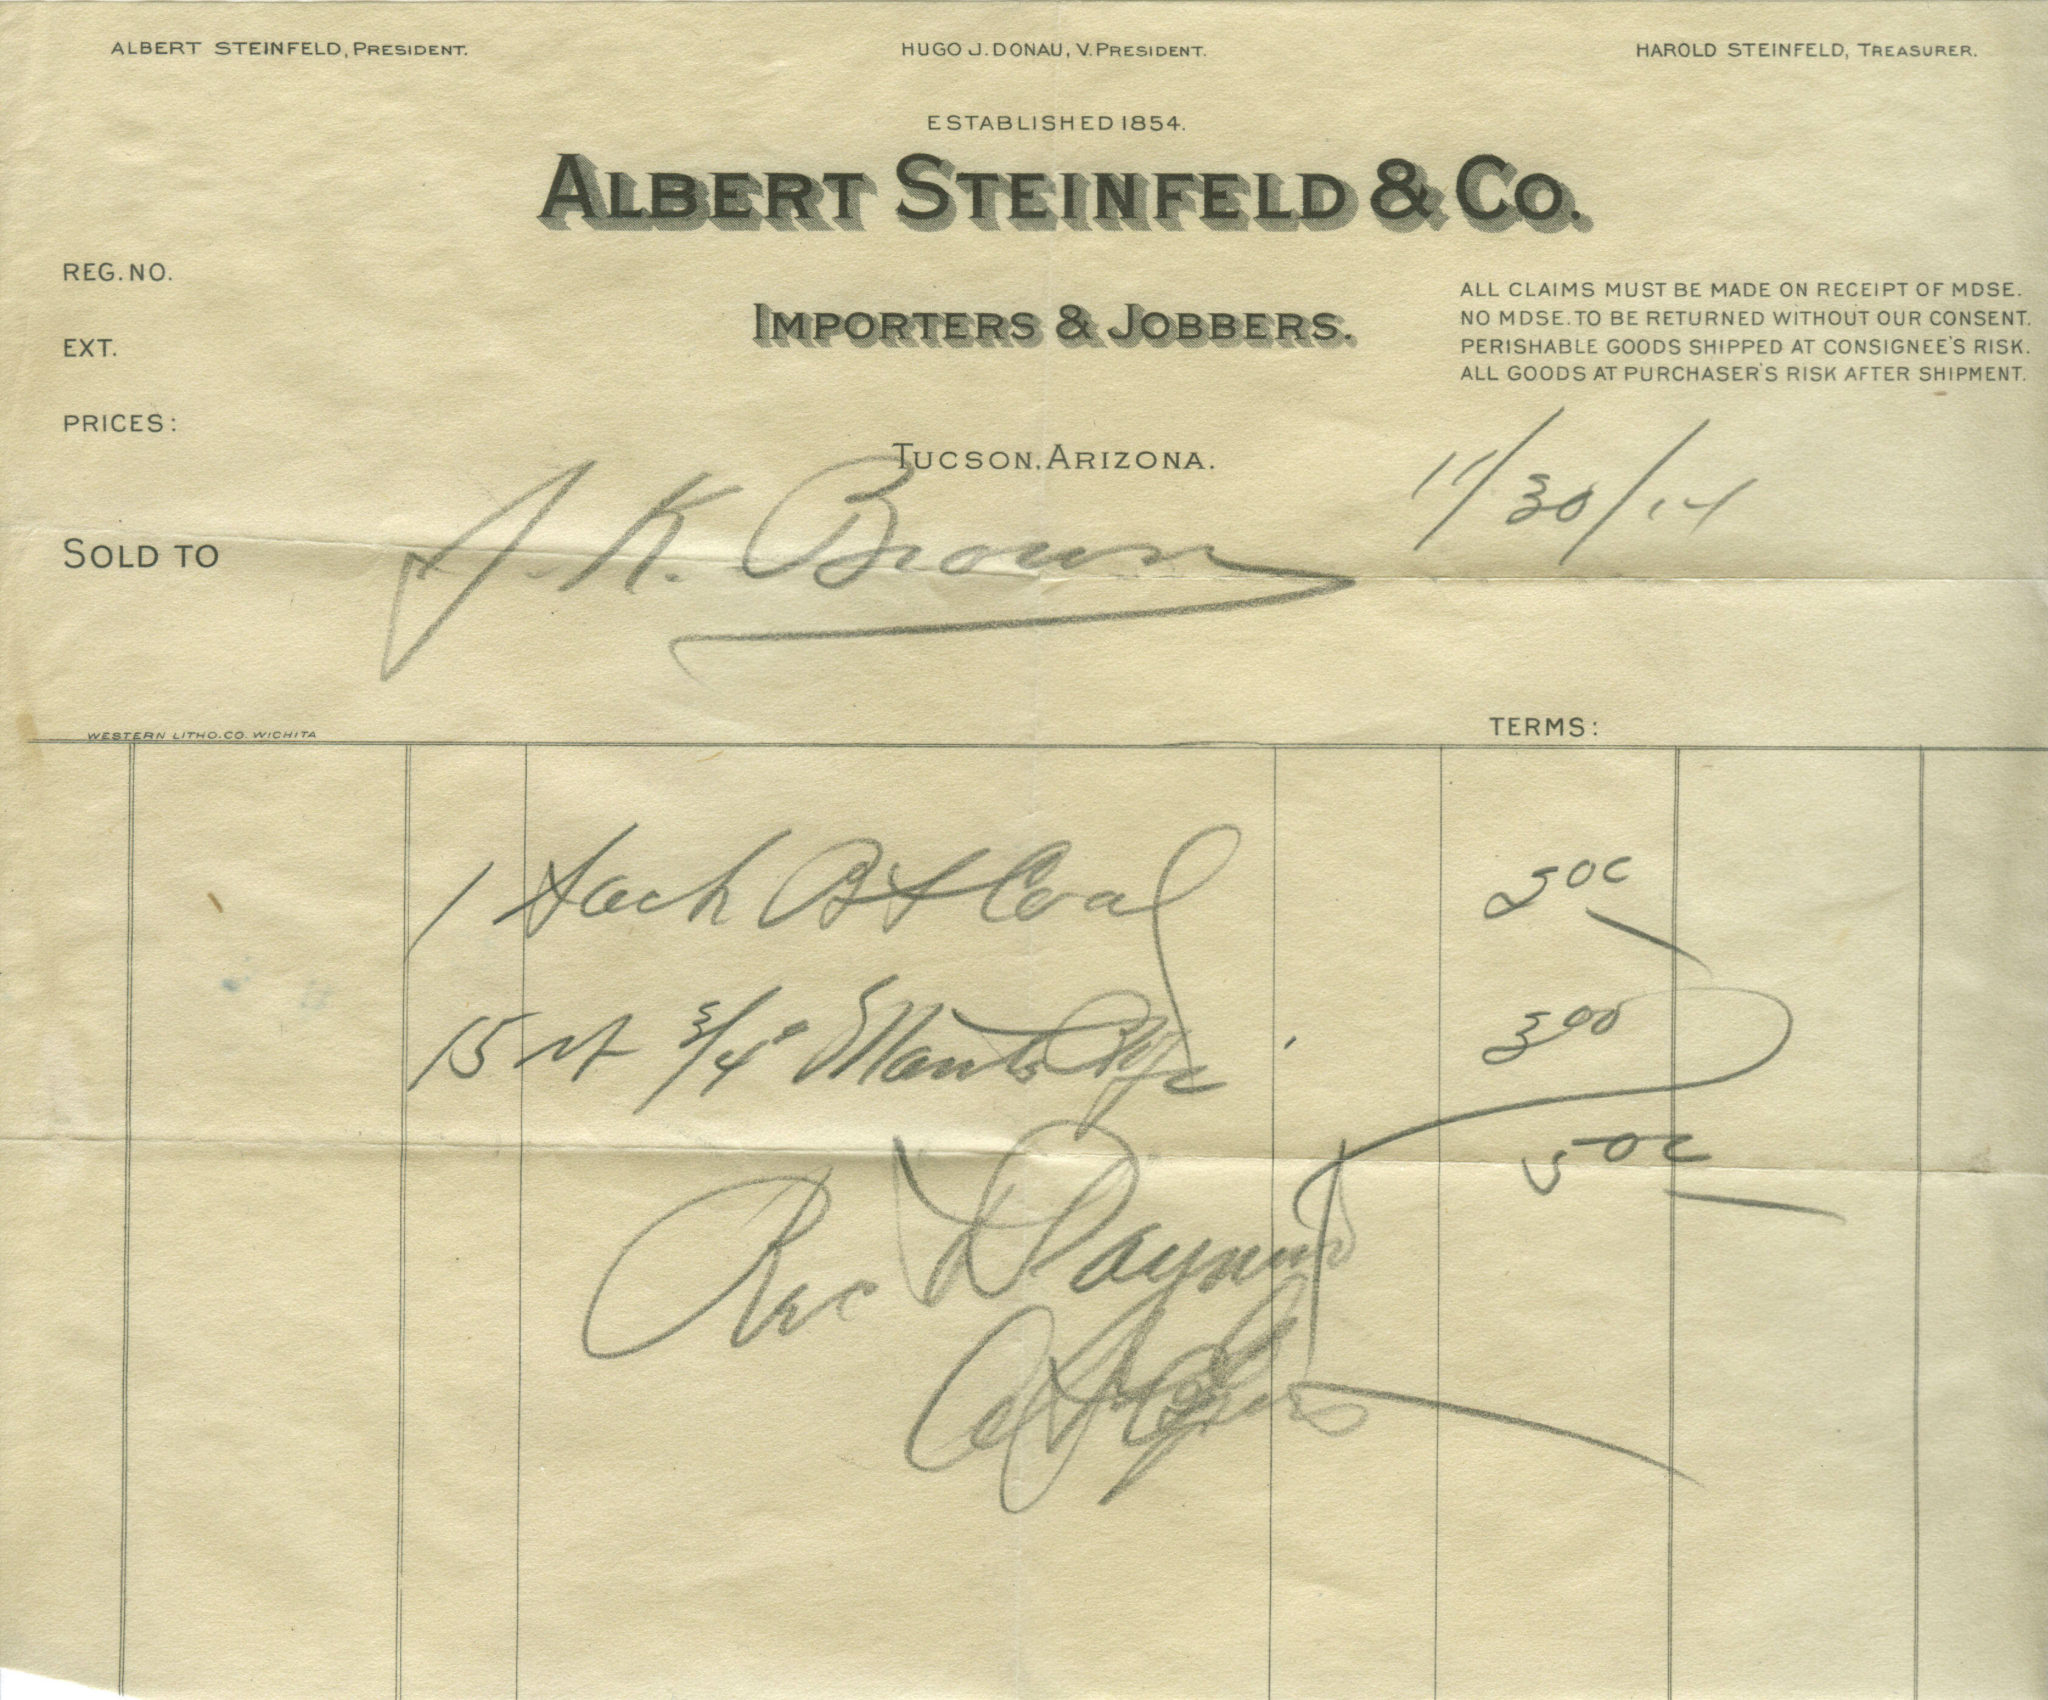 ALBERT STEINFELD, PRESIDENT. HUGO J. DONAU, V. PRESIDENT. HAROLD STEINFELD, TREASURER.
ESTABLISHED 1854.
ALBERT STEINFELD & CO.
IMPORTERS & JOBBERS.
REG. NO.
EXT.
PRICES:
ALL CLAIMS MUST BE MADE ON RECEIPT OF MDSE.
NO MDSE. TO BE RETURNED WITHOUT OUR CONSENT.
PERISHABLE GOODS SHIPPED AT CONSIGNEE'S RISK.
ALL GOODS AT PURCHASER'S RISK AFTER SHIPMENT.
TUCSON, ARIZONA. 11/30/14
SOLD TO J. K. Brown
WESTERN LITHO. CO. WICHITA TERMS:
1 Sack B S Coal 2 00
15 ft 3/4" 3 00
5 00
Rec Payment